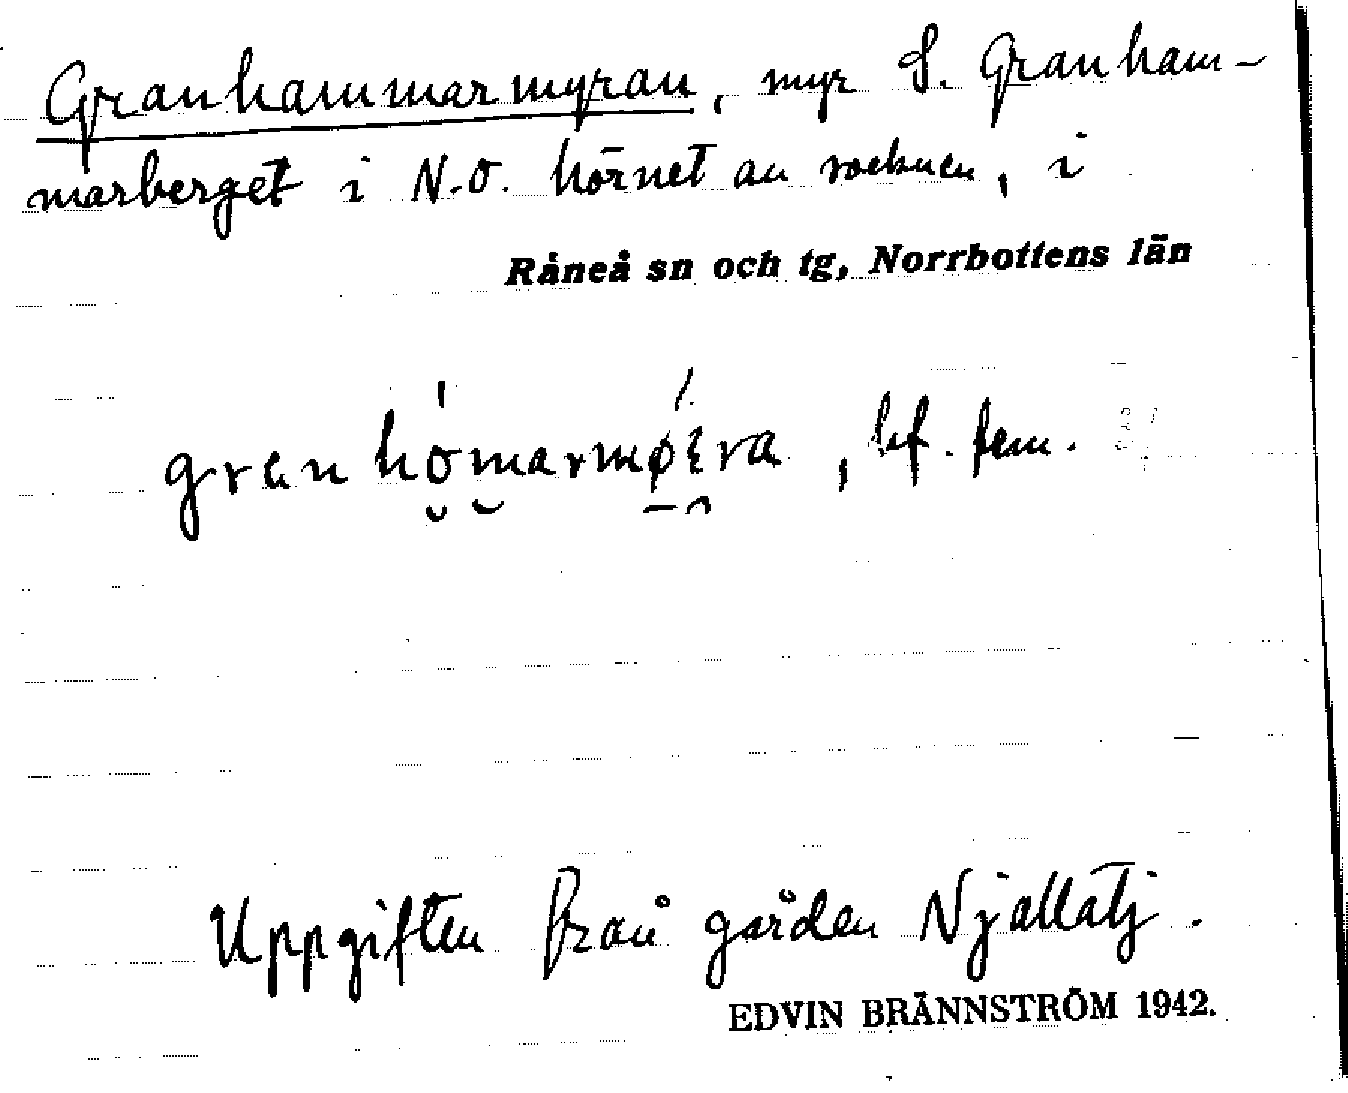 Granhammarmyran, myr S. Granham-
marberget i N.O. hörnet av socknen, i
Råneå sn och tg, Norrbottens län
bf. fem.
Uppgiften från gården Njallatj.
EDVIN BRÄNNSTRÖM 1942.